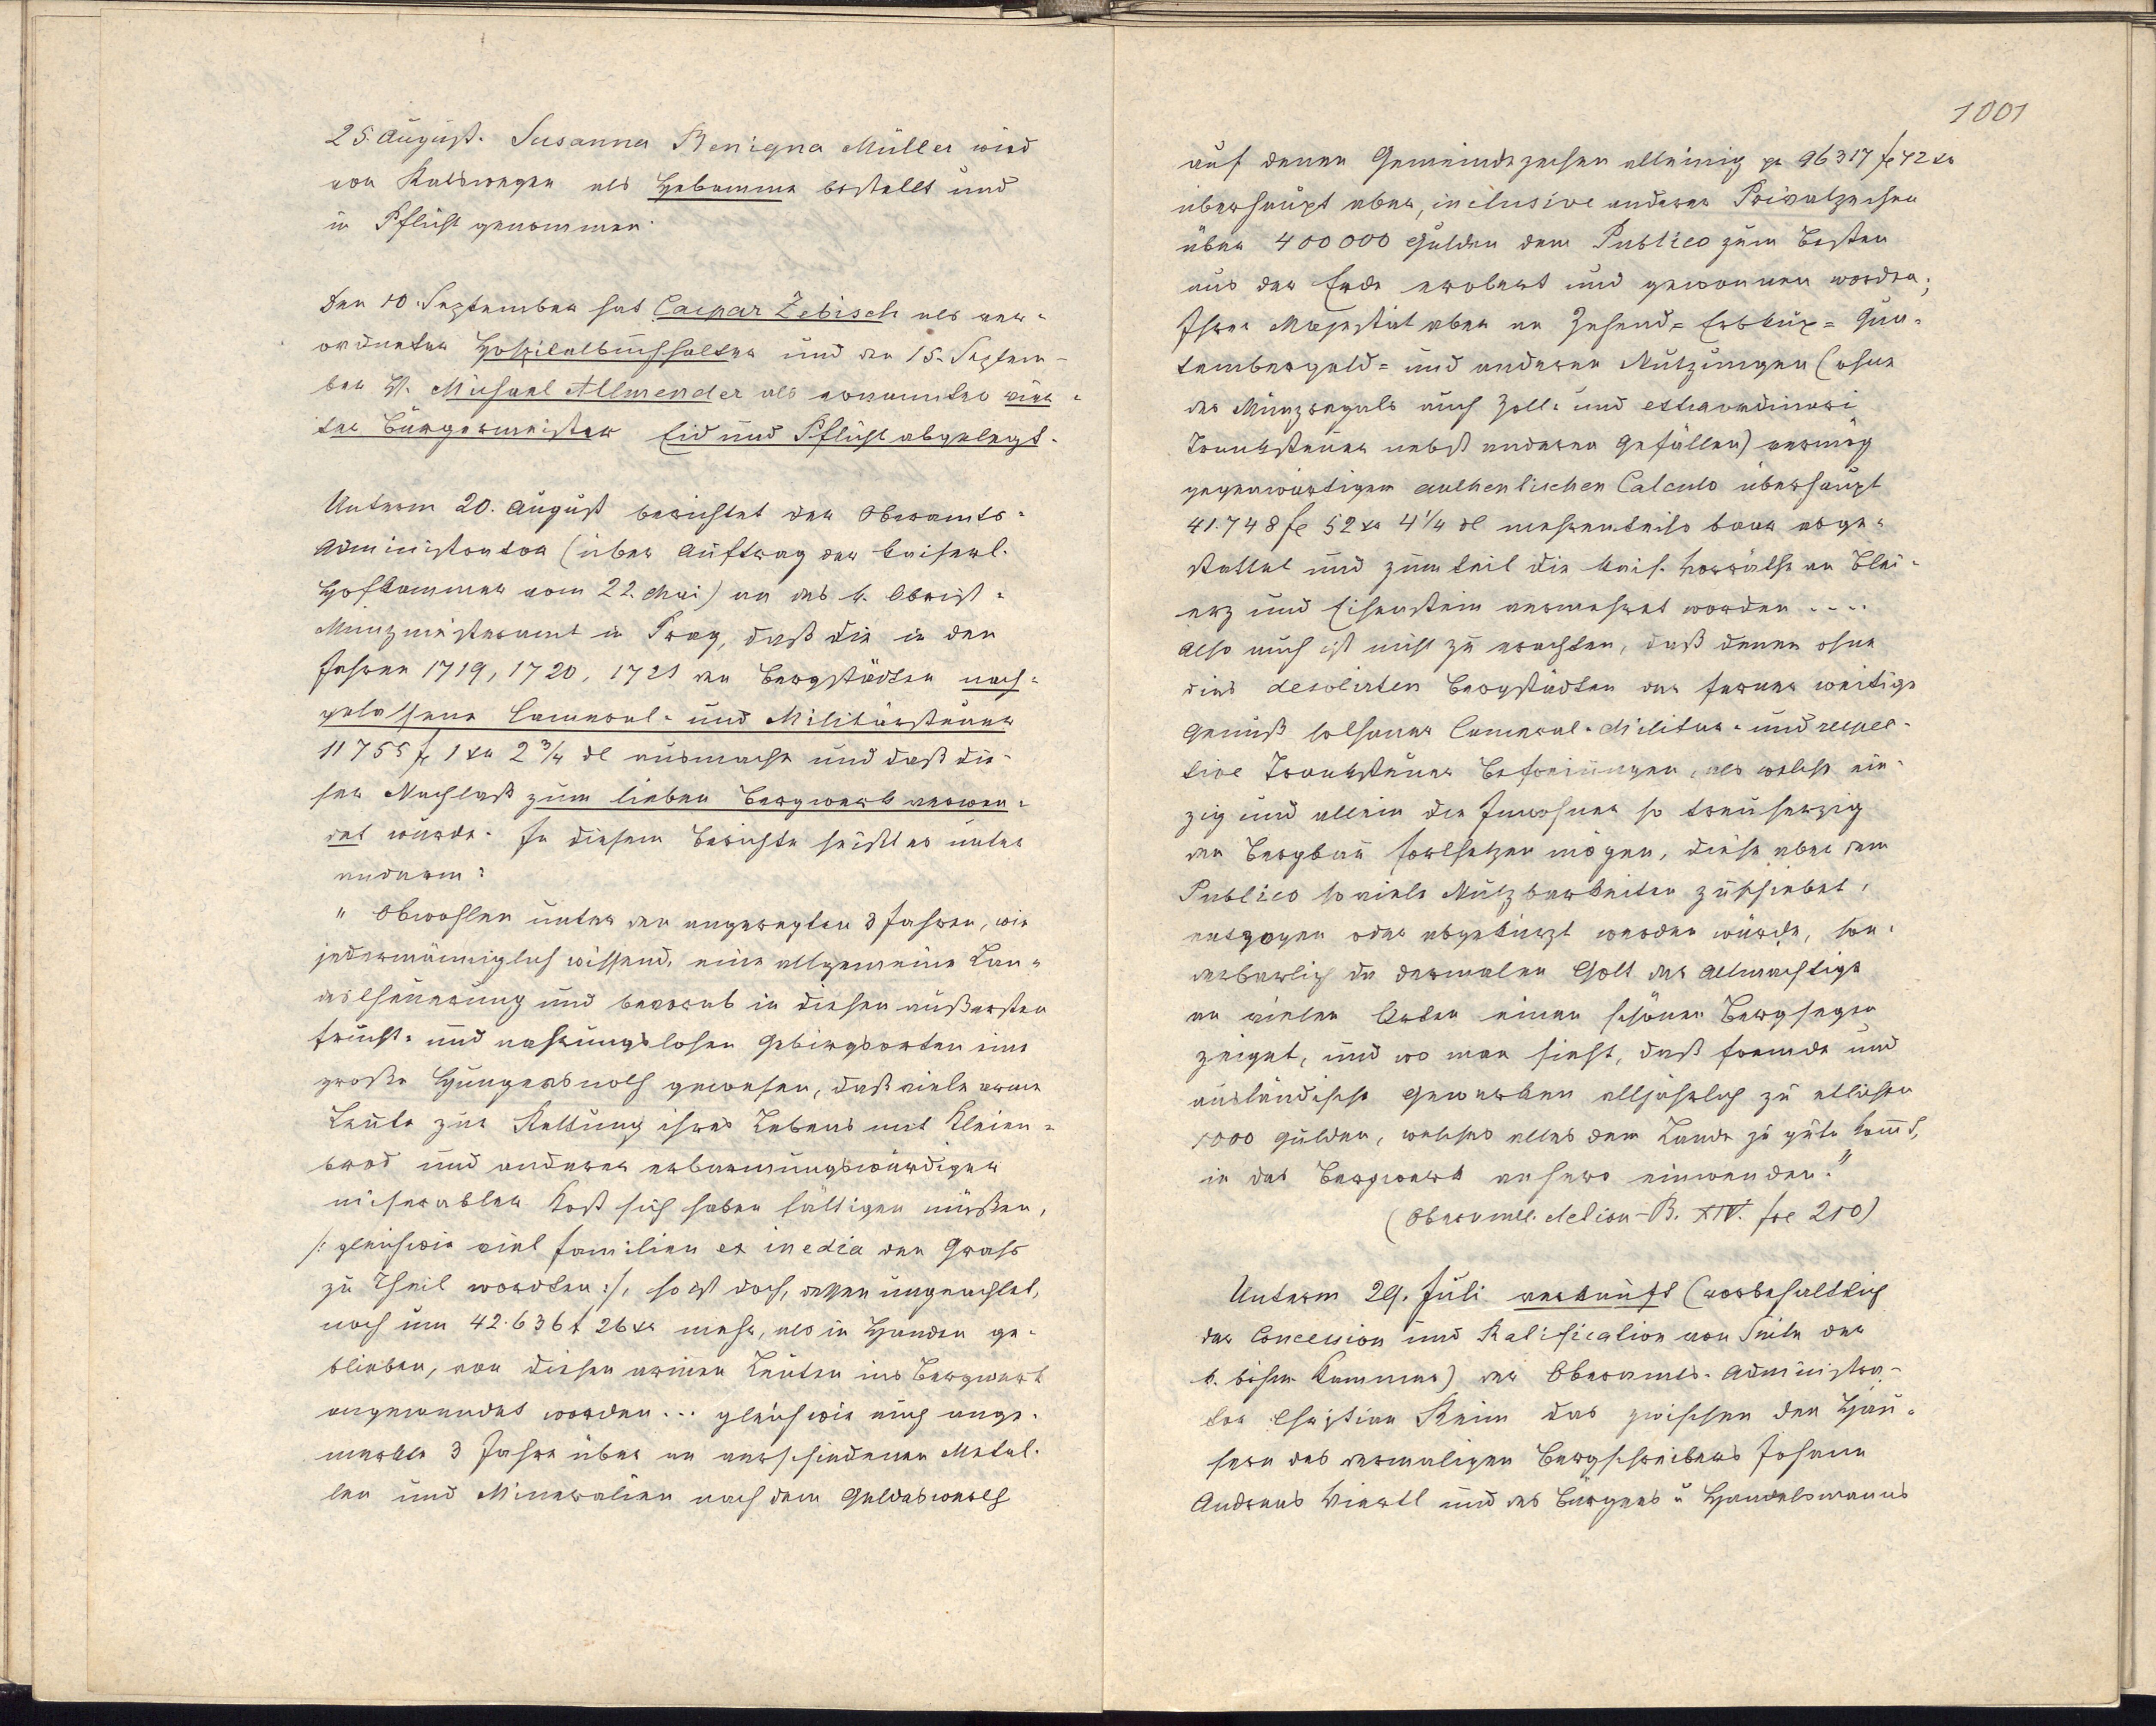 25. August. Susanna Benigna Müller wird
von Ratswegen als Hebamme bestellt und
in Pflicht genommen.
Den 10. September hat Caspar Zebisch als ver-
ordneter Hospitalbuchhalter und den 15. Septem-
ber H. Michael Allmender als ernannter vier-
ter Bürgermeister Eid und Pflicht abgelegt.
Unterm 20. August berichtet der Oberamts-
Administrator (über Auftrag der kaiserl.
Hofkammer vom 22. Mai) an das k. Obrist-
Münzmeisteramt in Prag, daß die in den
Jahren 1719, 1720, 1721 den Bergstädten nach-
gelassene Cameral- und Militärsteuer
11755 f 1 xr 2 3/4 dl ausmache und daß die-
ser Nachlaß zum lieben Bergwerk verwen-
det wurde. In diesem Berichte heißt es unter
anderm:
" Obwohlen unter den angeregten 3 Jahren, wie
jedermänniglich wissend, eine allgemeine Lan-
destheuerung und bevorab in diesen äußersten
frucht- und nahrungslosen Gebirgsorten eine
große Hungersnoth gewesen, daß viele arme
Leute zur Rettung ihres Lebens mit Kleien-
brod und anderer erbarmungswürdiger
miserablen Kost sich haben sättigen müßen,
/: gleichwie viel Familien ex inedia dem Grabe
zu Theil wordten :/, so ist doch, dessen ungeachtet,
noch um 42.636 f 26 xr mehr, als in Handen ge-
blieben, von diesen armen Leuten ins Bergwerk
angewendet worden... gleichwie auch ange-
merkte 3 Jahre über an verschiedenen Metal-
len und Mineralien nach dem Geldeswerth
1001
auf denen Gemeindezechen alleinig pr 96317 f 42 xr
überhaupt aber, inclusive anderer Privatzechen
über 400000 Gulden dem Publico zum Besten
aus der Erde erobert und gewonnen worden;
Ihrer Majestät aber an Zehend- Erbkux- Qua-
tembergeld- und anderen Nutzungen (ohne
des Münzregals auch Zoll- und extraordinari
Tranksteuer nebst anderen Gefällen) vermög
gegenwärtigen authentischen Calculo überhaupt
41.748 f 52 xr 4 1/4 dl mehrenteils baar abge-
stattet und zum teil die kais. Vorräthe an Blei-
erz und Eisenstein vermehret worden ....
Also auch ist nicht zu erachten, daß denen ohne
dies desolirten Bergstädten der fernerweitige
Genuß solhaner Cameral- Militar- und respec-
tive Tranksteuer Befreiungen, als welche ein-
zig und allein die Inwohner so treuherzig
den Bergbau fortsetzen mögen, diese aber dem
Publico so viele Nutzbarkeiten zuschiebet,
entzogen oder abgekürzt werden würde, son-
derbarlich da dermalen Gott der Allmachtige
an vielen Orten einen schönen Bergsegen
zeiget, und wo man sieht, daß fremde und
ausländische Gewerken alljährlich zu etlichen
1000 Gulden, welches alles dem Lande zu gute kommt,
in das Bergwerk anhero einwenden."
(Oberamtl. Action-B. XIV. foe 210)
Unterm 29. Juli verkauft (vorbehaltlich
der Concession und Ratification von Seite der
k. böhm. Kammer) der Oberamts-Administra-
tor Christian Keim das zwischen den Häu-
sern des dermaligen Bergschreibers Johann
Andreas Viertl und des Bürgers u Handelsmanns